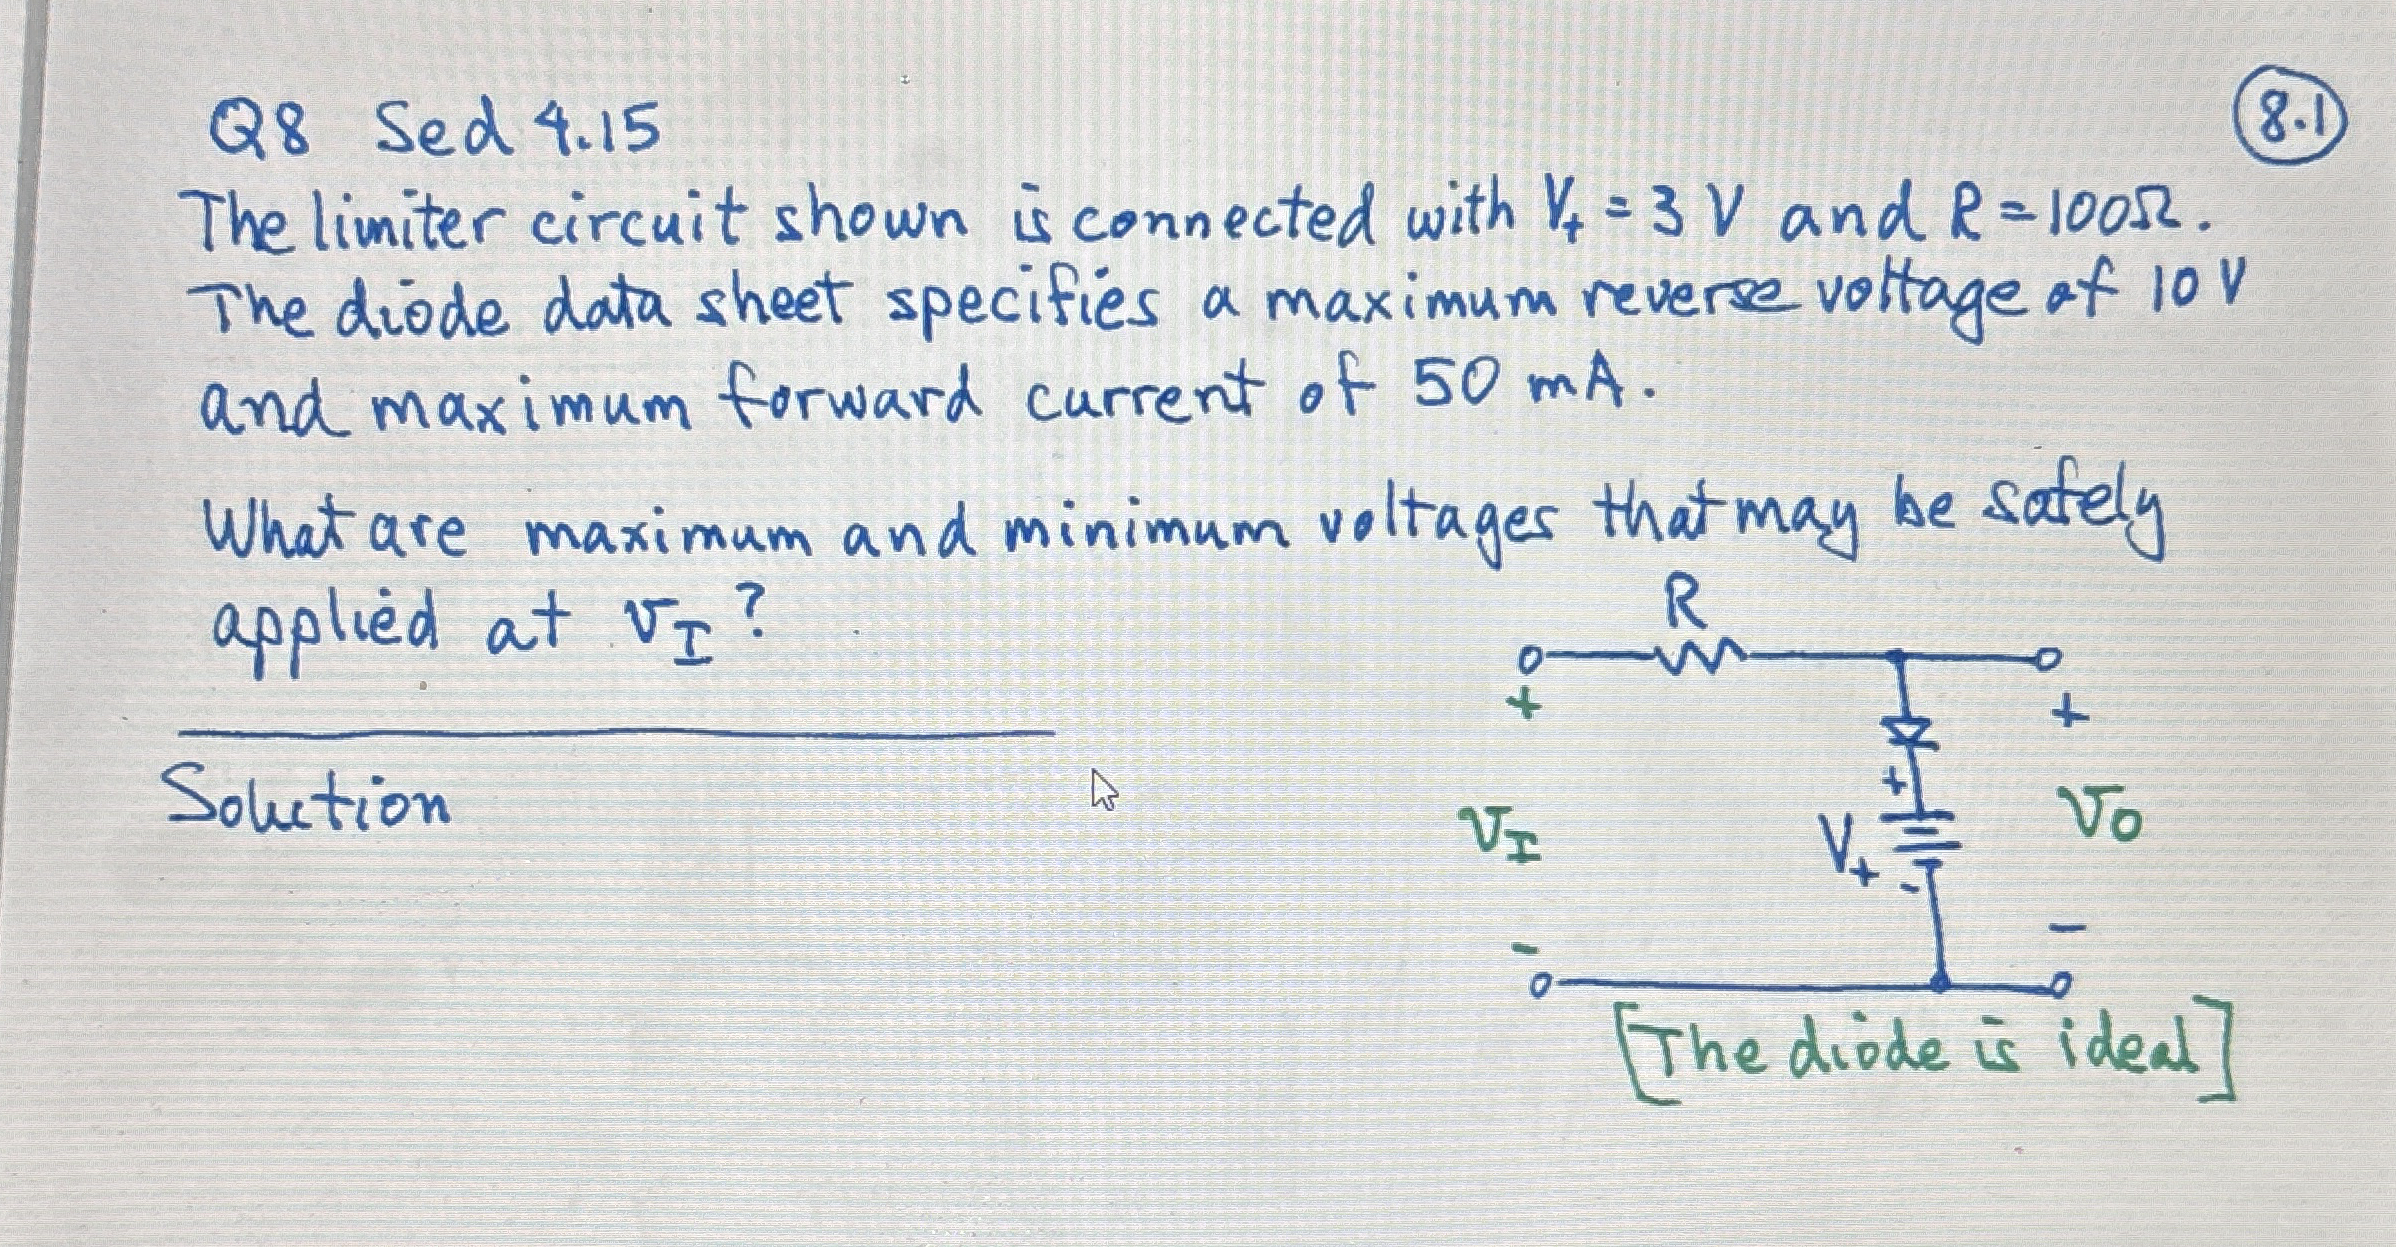 Q8 Sed 4.15
8.1
The limiter circuit shown is connected with V+ = 3 V and R = 100Ω.
The diode data sheet specifies a maximum reverse voltage of 10 V
and maximum forward current of 50 mA.
What are maximum and minimum voltages that may be safely
applied at vI?
R
+
+
Solution
+
vI
V+
vO
-
-
-
[The diode is ideal]